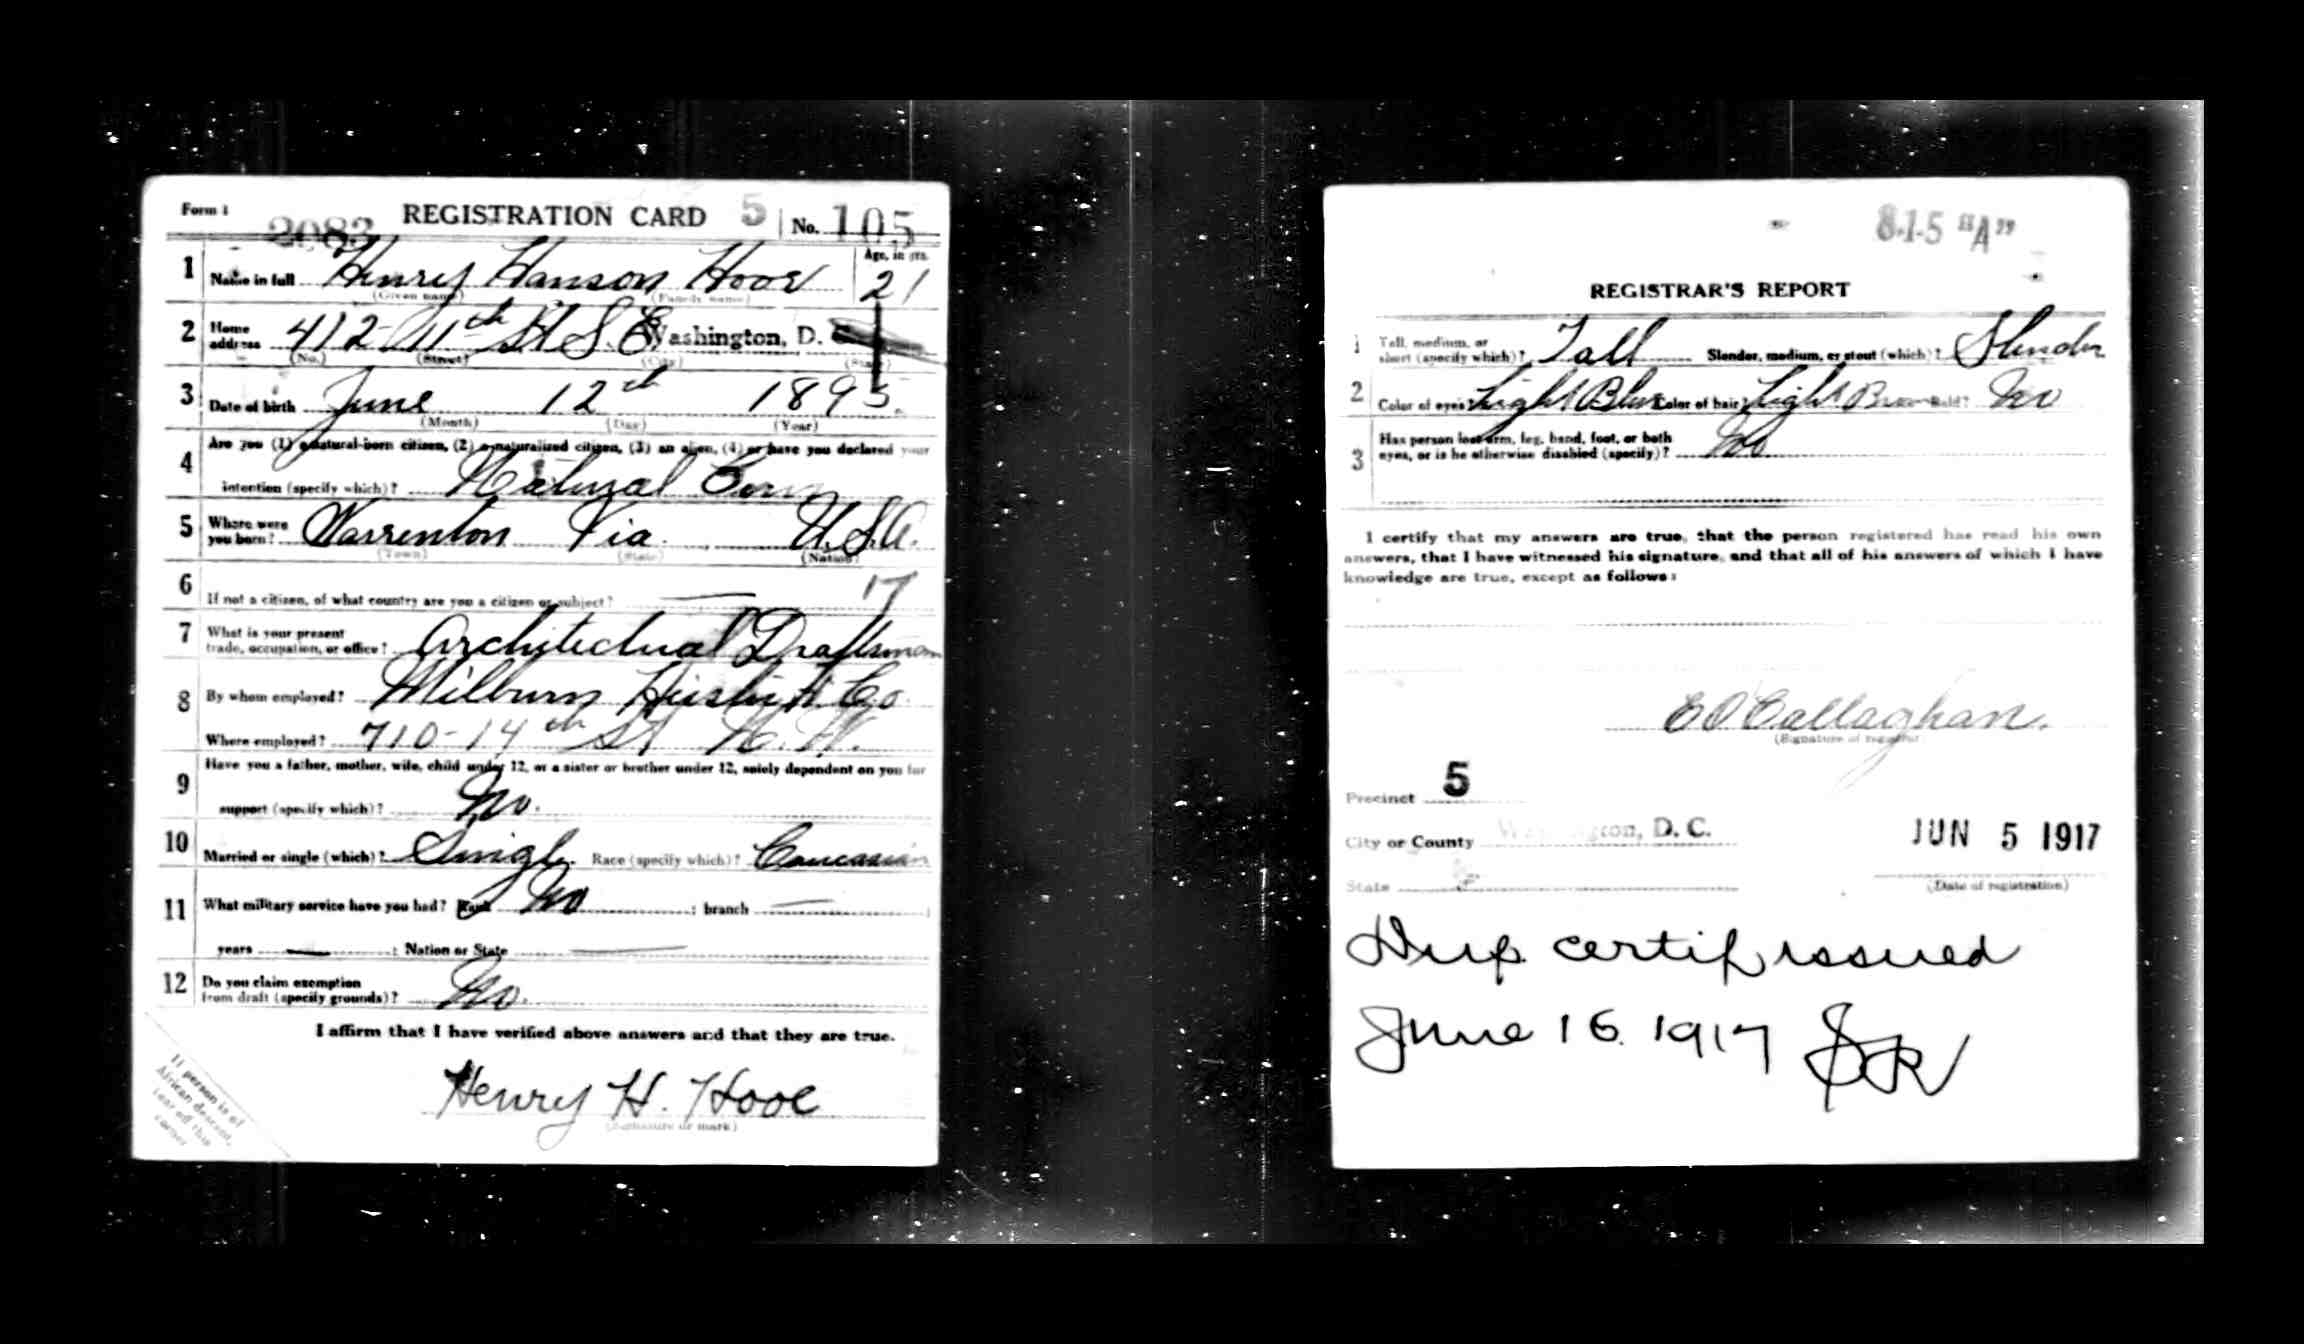 Form 1 2083 REGISTRATION CARD 5 No. 105
1 Name in full Henry Hanson Hooe Age, in yrs. 21
(Given name) (Family name)
2 Home address 412-11th St S.E. Washington, D.
(No.) (Street) (City) (State)
3 Date of birth June 12th 1895.
(Month) (Day) (Year)
4 Are you (1) a natural-born citizen, (2) a naturalized citizen, (3) an alien, (4) or have you declared your
intention (specify which)? Natural Born
5 Where were you born? Warrenton Via U.S.A.
(Town) (State) (Nation)
6 If not a citizen, of what country are you a citizen or subject? — 17
7 What is your present trade, occupation, or office? Architectual Draftsman
8 By whom employed? Milburn Heister & Co.
Where employed? 710-14th St N.W.
9 Have you a father, mother, wife, child under 12, or a sister or brother under 12, solely dependent on you for
support (specify which)? No.
10 Married or single (which)? Single. Race (specify which)? Caucasian
11 What military service have you had? Rank No ; branch —
years — ; Nation or State —
12 Do you claim exemption from draft (specify grounds)? No.
I affirm that I have verified above answers and that they are true.
Henry H. Hooe
(Signature or mark)
If person is of
African descent,
tear off this
corner
8-1-5 "A"
REGISTRAR'S REPORT
1 Tall, medium, or short (specify which)? Tall Slender, medium, or stout (which)? Slender
2 Color of eyes? Light Blue Color of hair? Light Brown Bald? No
3 Has person lost arm, leg, hand, foot, or both eyes, or is he otherwise disabled (specify)? No
I certify that my answers are true, that the person registered has read his own
answers, that I have witnessed his signature, and that all of his answers of which I have
knowledge are true, except as follows:
E O'Callaghan.
(Signature of registrar)
Precinct 5
City or County Washington, D. C. JUN 5 1917
State (Date of registration)
Dup. certif issued
June 16. 1917